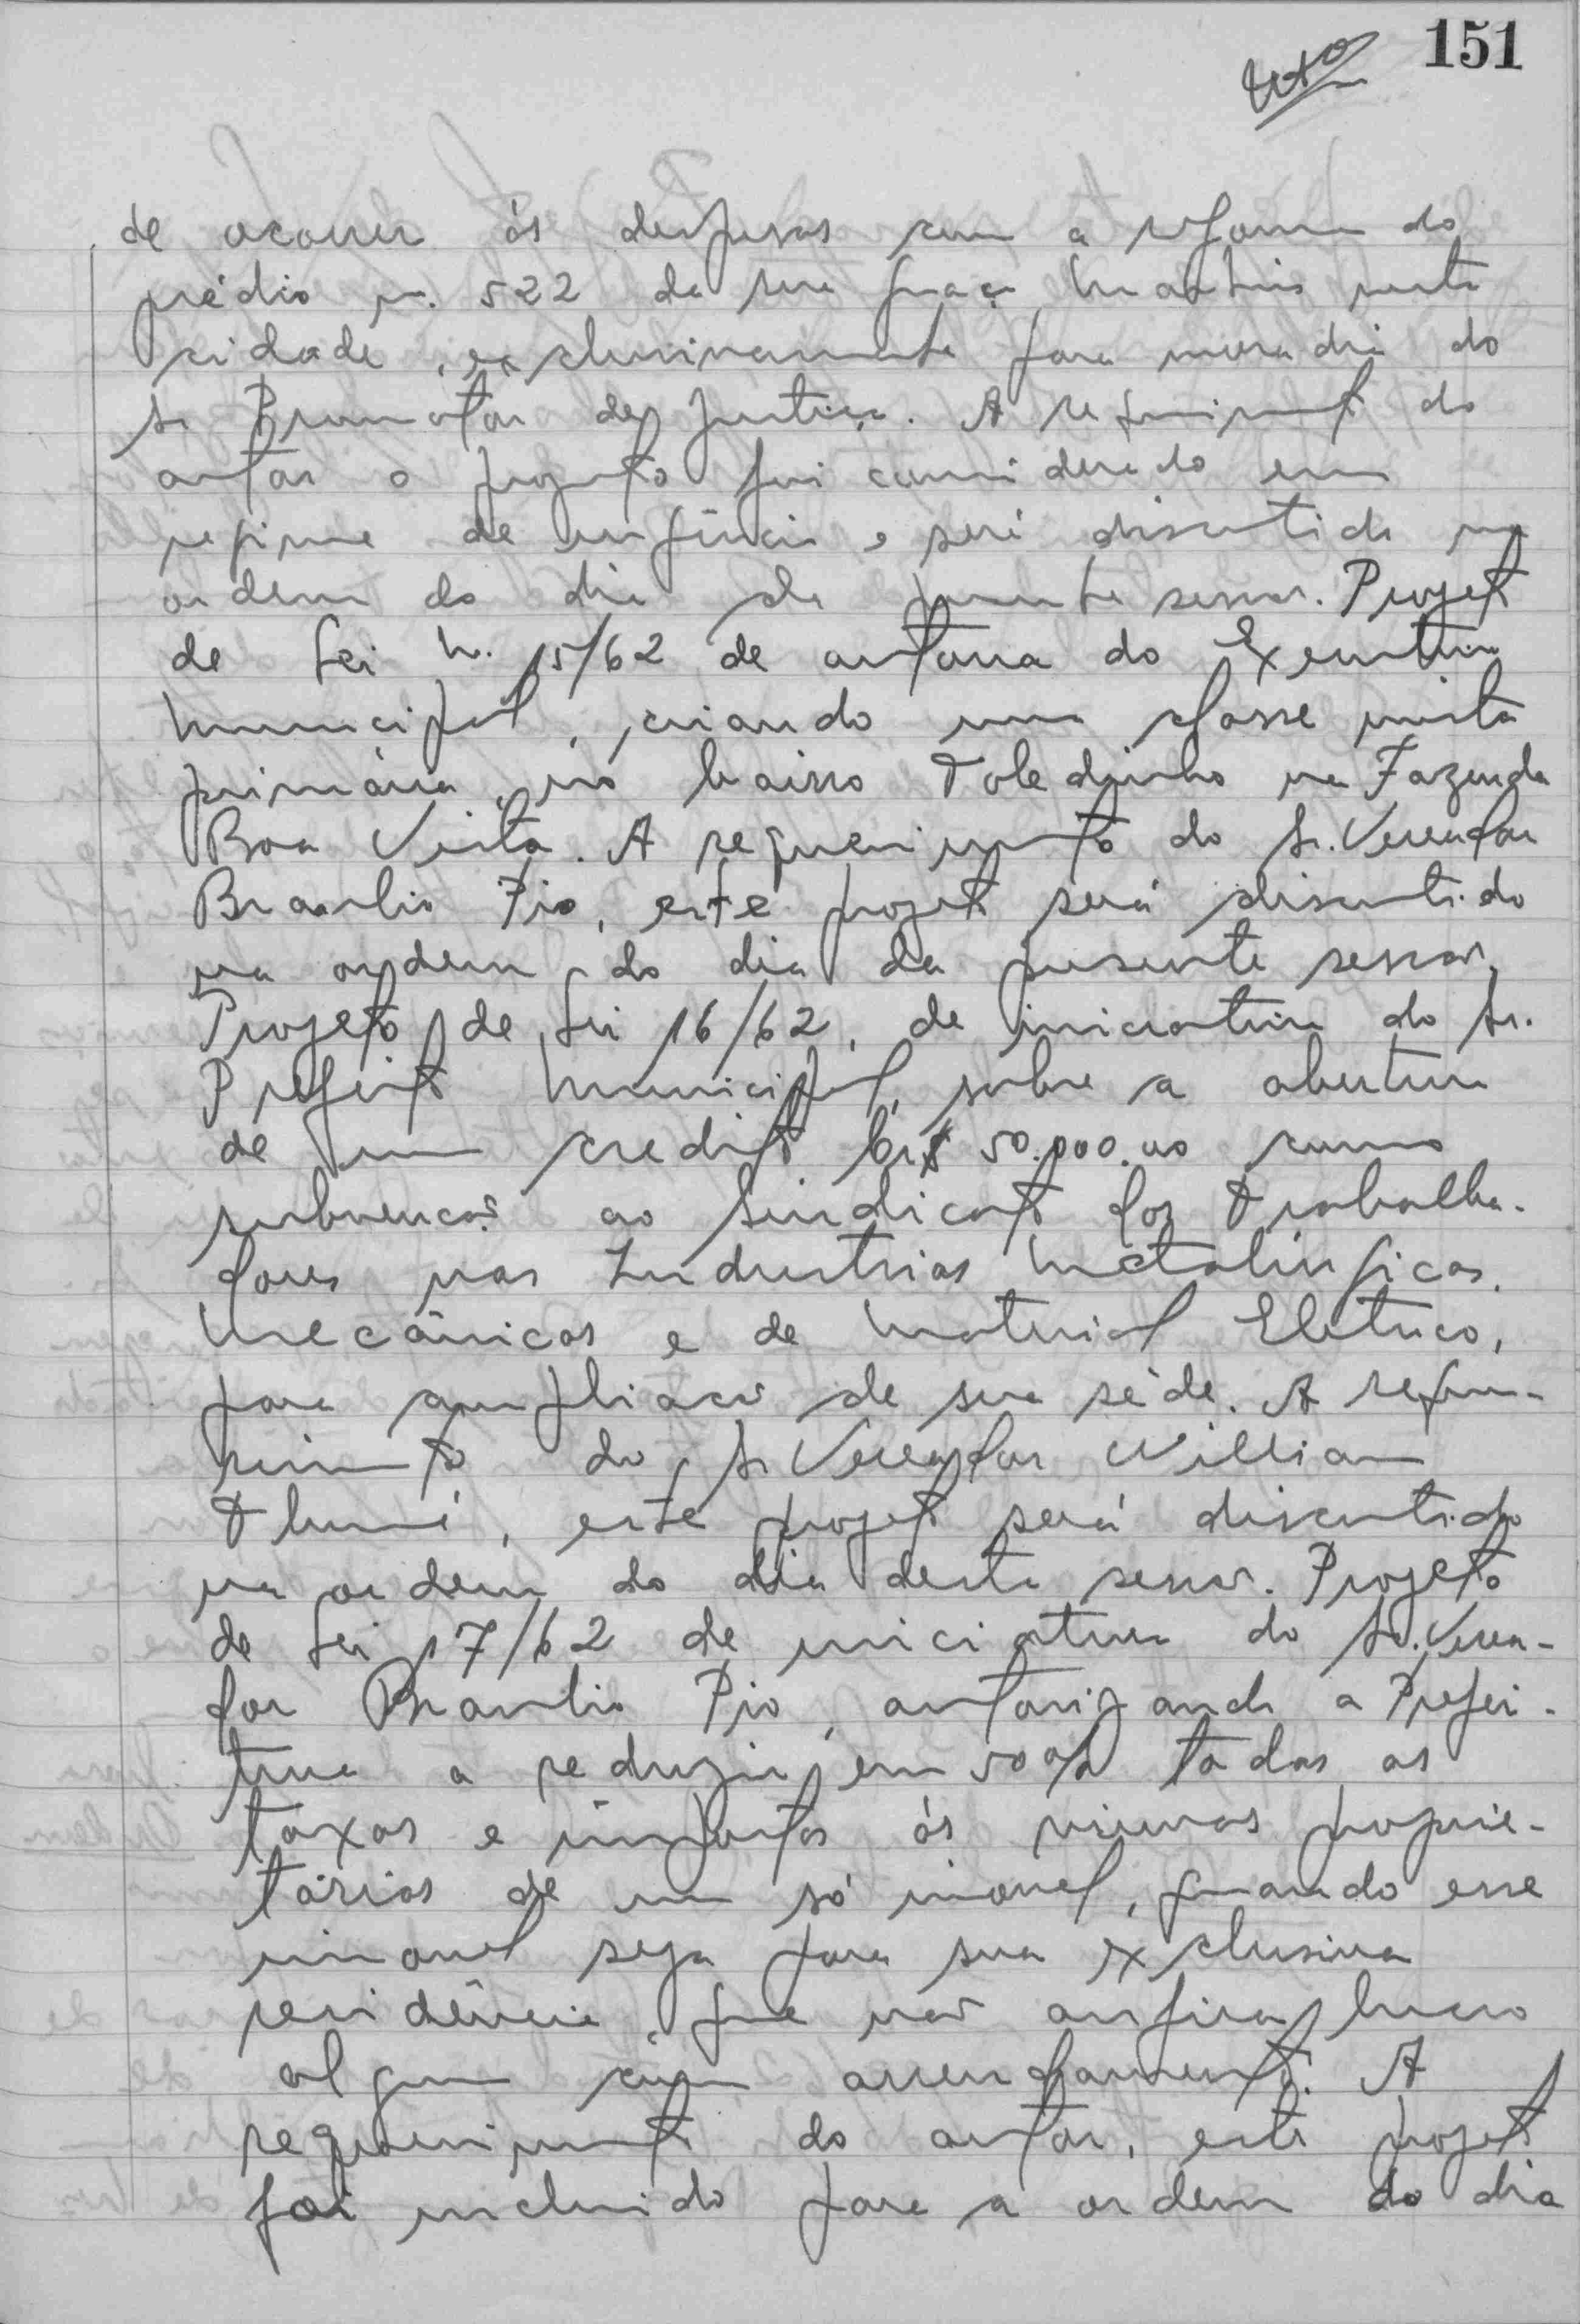 151
de ocorrer ás despesas com a reforma do
prédio n. 522 da rua Graça Martins nesta
cidade, exclusivamente para moradia do
Sr Promotor de Justiça. A requeriment do
autor o projeto foi considerado em
regime de urgência e será discutido na
ordem do dia da presente sessão. Projeto
de Lei n. 15/62 de autoria do Executivo
Municipal, criando uma classe mista
primária, no bairro Toledinho na Fazenda
Boa Vista. A requerimento do Sr. Vereador
Braulio Pio, este projeto será discutido
na ordem do dia da presente sessão.
Projeto de Lei 16/62, de iniciativa do Sr.
Prefeito Municipal, sobre a abertura
de um credito Cr$ 50.000.00 como
subvenção ao Sindicato dos Trabalha-
dores nas Industrias Metalúrgicas,
Mecânicas e de Material Eletrico,
para ampliação de sua séde. A reque-
rimento do Sr Vereador William
este projeto será discutido
na ordem do dia desta sessão. Projeto
de Lei 17/62 de iniciativa do Sr. Verea-
dor Braulio Pio, autorizando a Prefei-
tura a reduzir em 50% todas as
taxas e impostos ás viuvas proprie-
tárias de um só imovel, quando esse
imovel seja para sua exclusiva
residência, que não aufira lucro
algum com arrendamento. A
requerimento do autor, este projeto
foi incluido para a ordem do dia